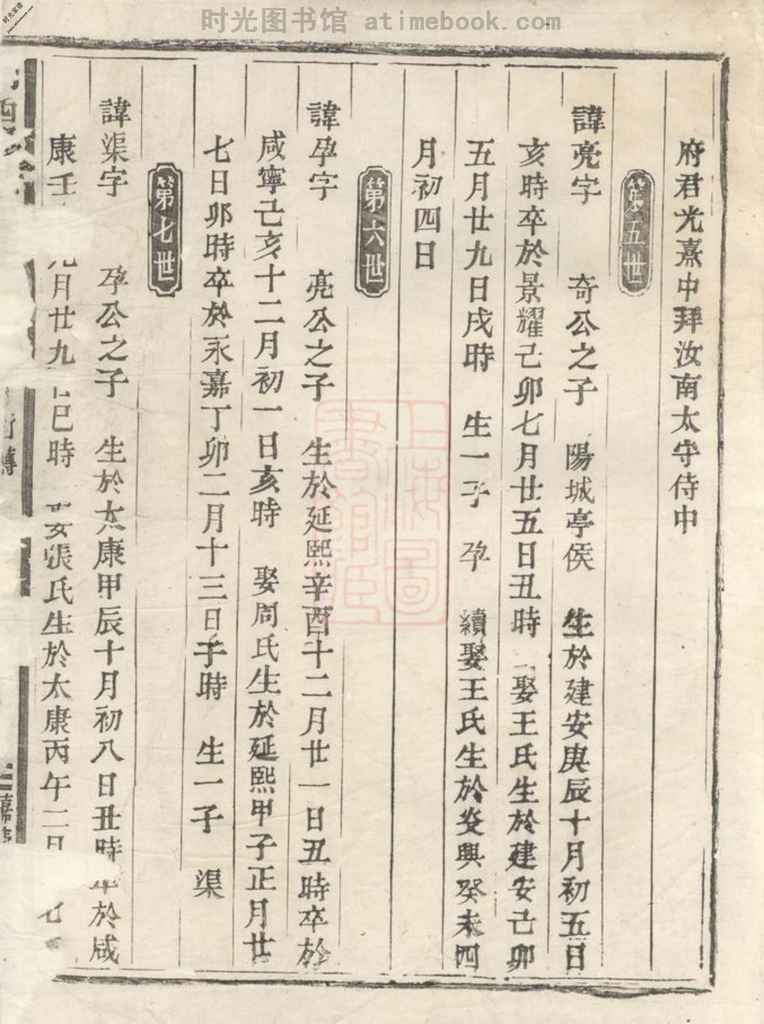 时光图书馆 atimebook.com
府君光熹中拜汝南太守侍中
第五世
諱亮字 奇公之子 陽城亭侯 生於建安庚辰十月初五日
亥時卒於景耀己卯七月廿五日丑時 娶王氏生於建安己卯
五月廿九日戌時 生一子 孕 續娶王氏生於炎興癸未四
月初四日
第六世
諱孕字 亮公之子 生於延熙辛酉十二月廿一日丑時卒於
咸寧己亥十二月初一日亥時 娶周氏生於延熙甲子正月廿
七日卯時卒於永嘉丁卯二月十三日子時 生一子 渠
第七世
諱渠字 孕公之子 生於太康甲辰十月初八日丑時卒於咸
康壬 月廿九 巳時 娶張氏生於太康丙午二月 七